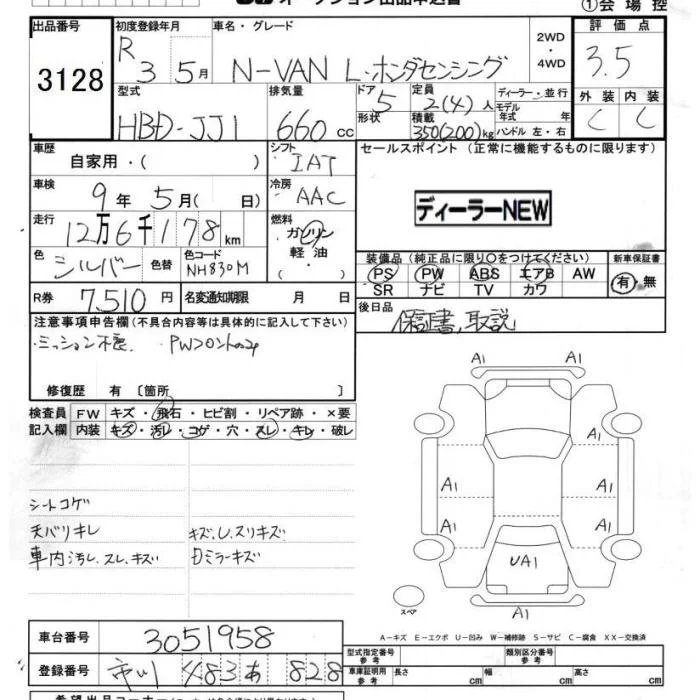 オークション出品申込書
①会場控
出品番号 3128
初度登録年月 R 3 5月
車名・グレード N-VAN L・ホンダセンシング
2WD・4WD
評価点 3.5
外装 C 内装 C
型式 HBD-JJ1
排気量 660 cc
ドア 5 形状
定員 2(4)人
積載 350(200)kg
ディーラー・並行
モデル年式 年式
ハンドル 左・右
車歴 自家用・( )
シフト IAT
車検 9年5月( 日)
冷房 AAC
走行 12万6千178km
燃料 ガソリン 軽油 ( ・ )
色 シルバー 色替
色コード NH830M
R券 7,510円
名変通知期限 月 日
セールスポイント(正常に機能するものに限ります)
ディーラーNEW
装備品(純正品に限り○をつけてください)
PS PW ABS エアB AW
SR ナビ TV カワ
新車保証書 有・無
後日品 保証書,取説
注意事項申告欄(不具合内容等は具体的に記入して下さい)
・ミッション不良 ・PWフロントのみ
修復歴 有〔箇所 〕
検査員記入欄
FW キズ・飛石・ヒビ割・リペア跡・×要
内装 キズ・汚レ・コゲ・穴・スレ・キレ・破レ
シートコゲ
天バリキレ
車内汚レ、スレ、キズ
キズ、U、スリキズ
Dミラーキズ
A1
A1
A1 A1
A1 A1
UA1
A1
スペア
A−キズ E−エクボ U−凹み W−補修跡 S−サビ C−腐食 XX−交換済
車台番号 3051958
登録番号 市川 483 あ 828
型式指定番号 参考
類別区分番号 参考
車庫証明用 参考 長さ cm 幅 cm 高さ cm
希望出品コーナー